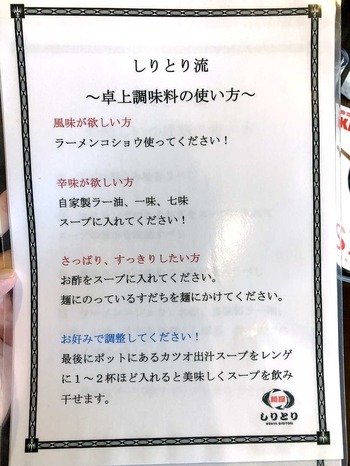 しりとり流
～卓上調味料の使い方～
風味が欲しい方
ラーメンコショウ使ってください！
辛味が欲しい方
自家製ラー油、一味、七味
スープに入れてください！
さっぱり、すっきりしたい方
お酢をスープに入れてください。
麺にのっているすだちを麺にかけてください。
お好みで調整してください！
最後にポットにあるカツオ出汁スープをレンゲ
に１～２杯ほど入れると美味しくスープを飲み
干せます。
麺屋
しりとり
MENYA SIRITORI